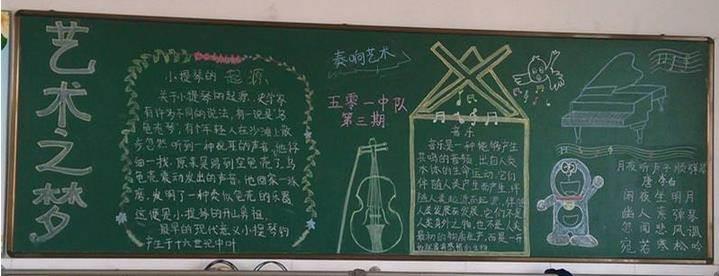 艺术之梦
小提琴的 起源
关于小提琴的起源,史学家
有许多不同的说法,有一说是乌
龟壳琴,有个年轻人在沙滩上散
步忽然听到一种悦耳的声音,他仔
细一找,原来是踢到空龟壳了,乌
龟壳震动发出的声音,他回家一琢
磨,发明了一种类似龟壳的乐器
这便是小提琴的开山鼻祖。
最早的现代意义小提琴约
产生于十六世纪中叶
奏响艺术
五零一中队
第三期
音乐
音乐是一种能够产生
共鸣的音频,出自人类
本体的生命运动,它们
伴随人类产生而产生,伴
随人类起源而起源,伴随
人类发展而发展,它们不是
人类身外之物,也不是人类
最初的物质生产,而是一开
月夜听卢子顺弹琴
唐 李白
闲夜坐明月
幽人弹素琴
忽闻悲风调
宛若寒松吟